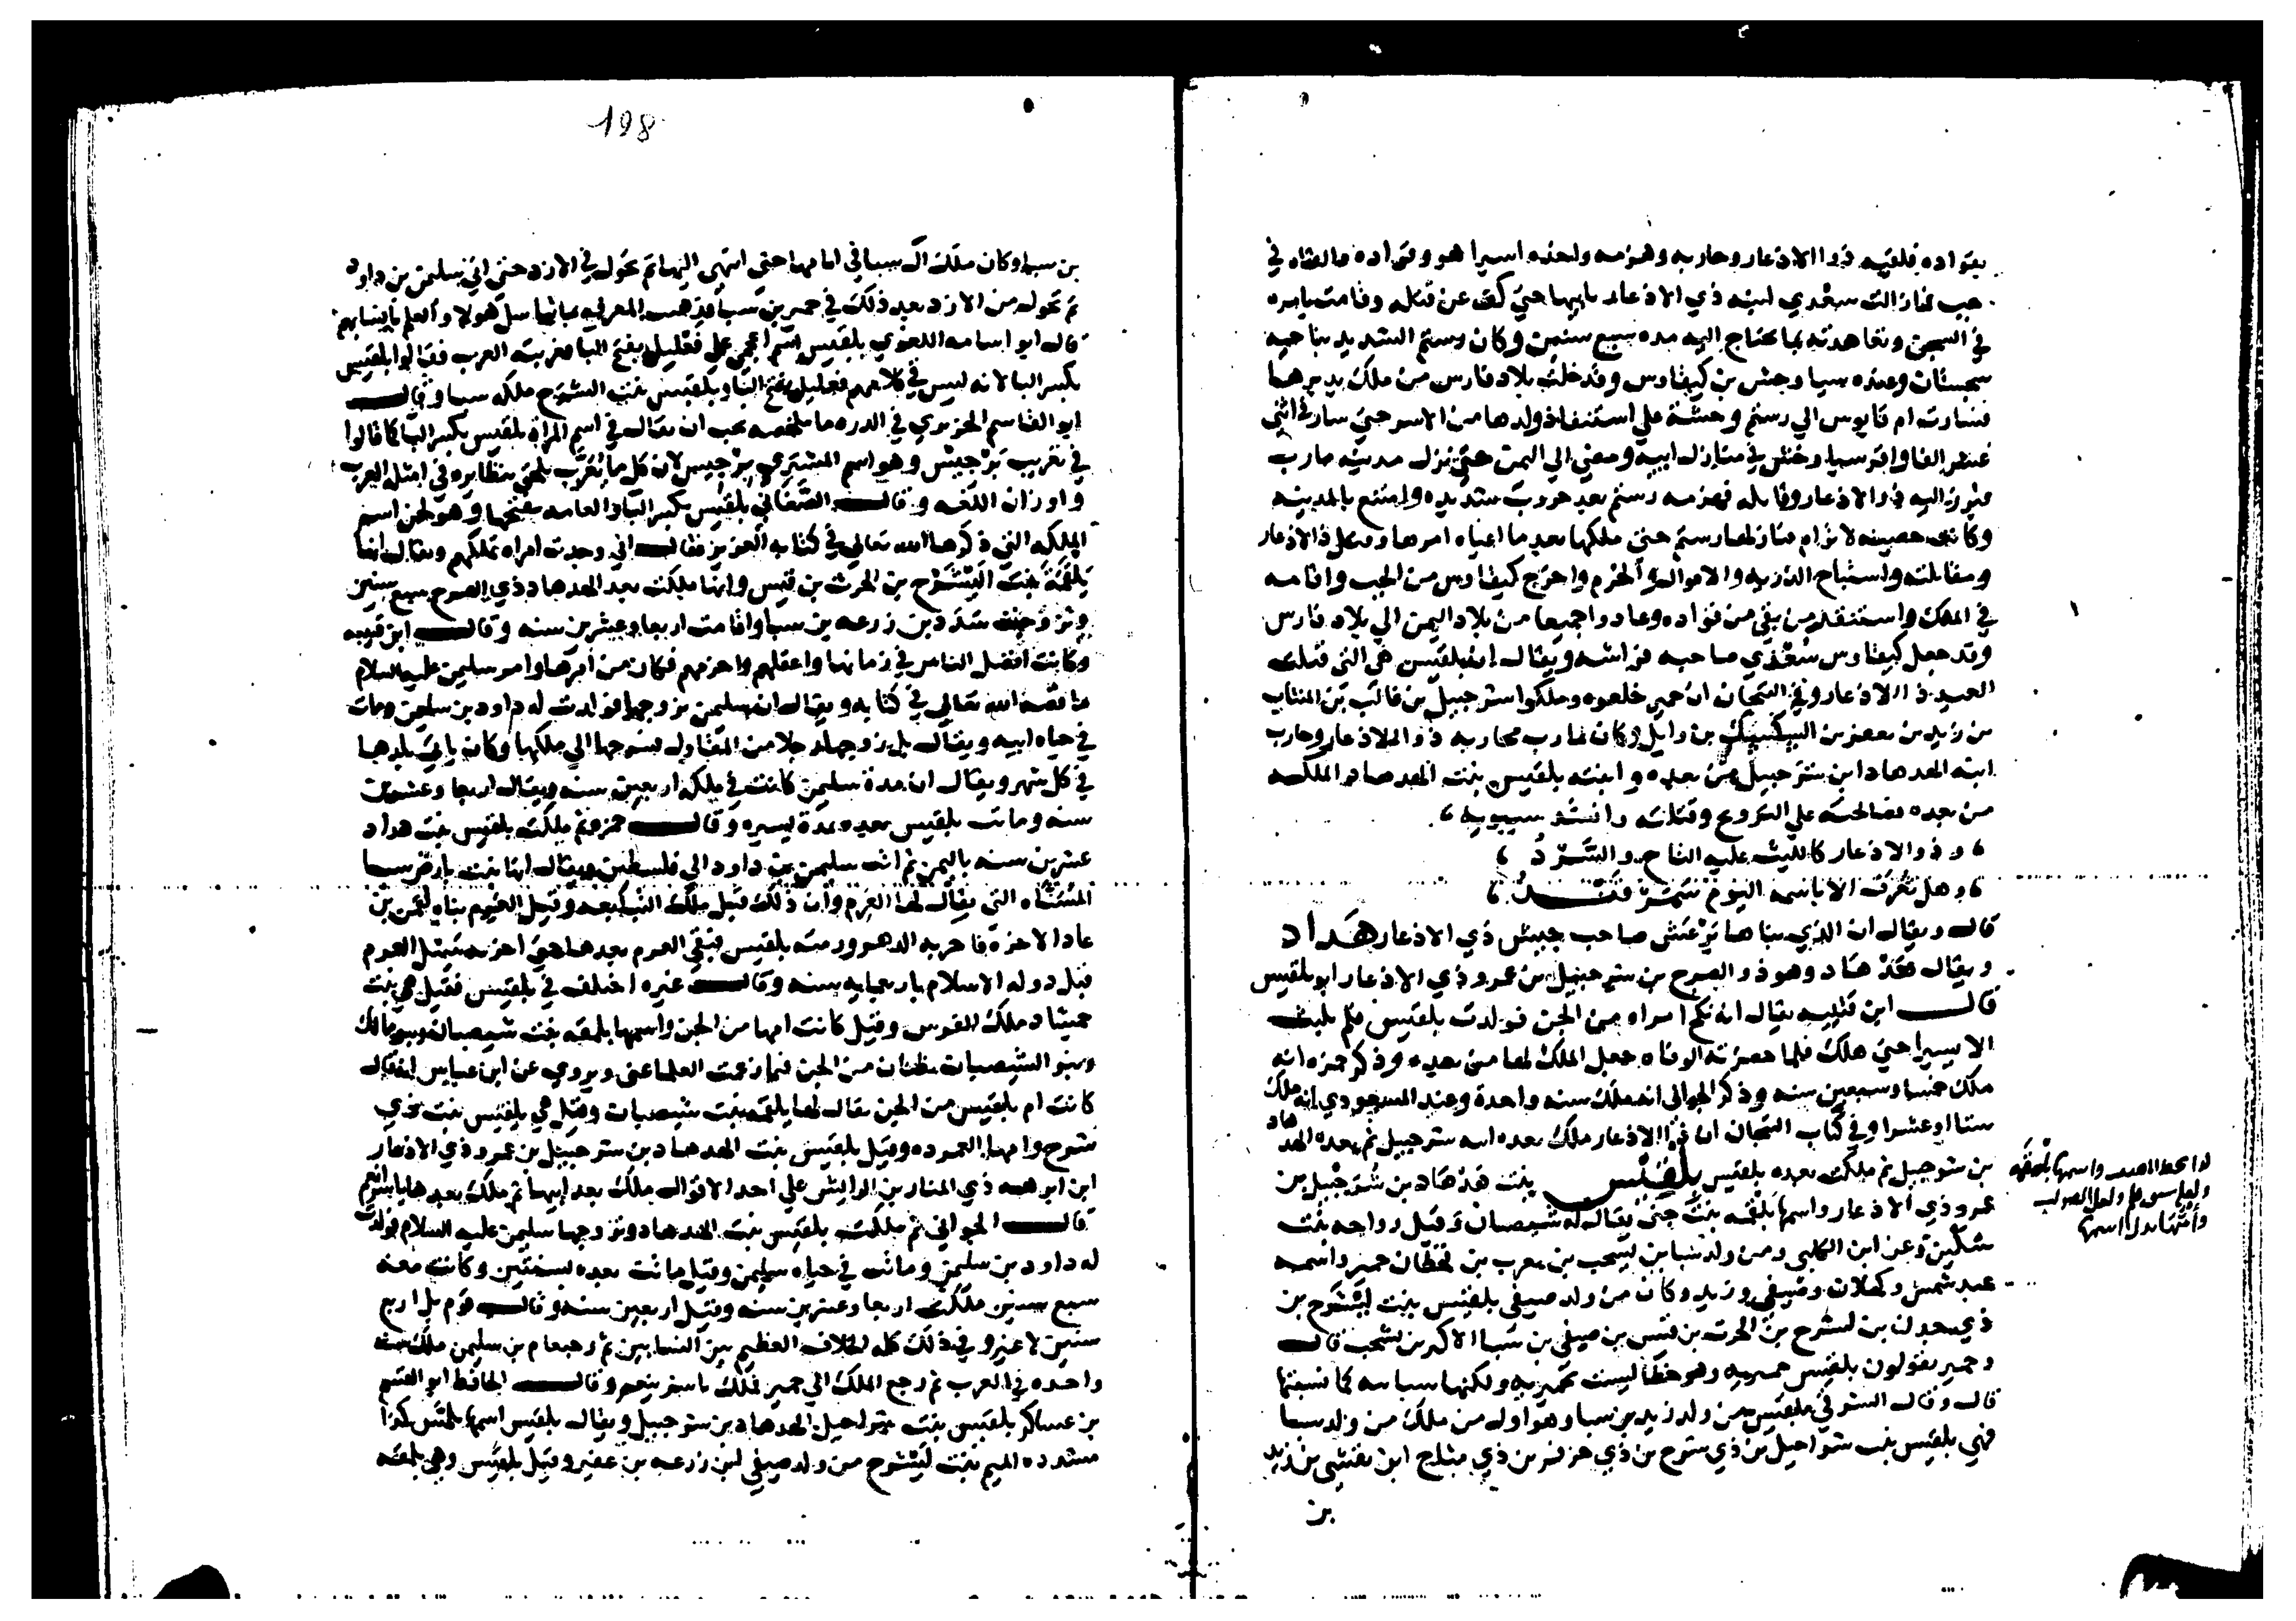 بقواده فلقيه ذوا الاذعار وحاربه وهزمه واخذه اسيرا هو وقواده فالقاه في
جب فما زالت سعدي ابنه ذي الاذعار بابيها حتي كف عن قتله وقامت بامره
في السجن وتعاهدته بما يحتاج اليه مده سبع سنين وكان رستم الشديد بناحيه
سجستان وعنده سياوخش بن كيقاوس وقد خلت بلاد فارس من ملك يدبرها
فسارت ام قابوس الي رستم وحثته علي استنقاذ ولدها من الاسر حتي سار في اثني
عشر الفا واقر سياوخش في منازل ابيه ومضي الي اليمن حتي نزل مدينه مارب
فبرز اليه ذو الاذعار وقابله فهزمه رستم بعد حروب شديده وامتنع بالمدينه
وكانت حصينه لا ترام فنازلها رستم حتي ملكها بعد ما اعياه امرها وقتل ذا الاذعار
ومقاتلته واستباح الذريه والاموال والحرم واخرج كيقاوس من الجب واقامه
في الملك واستنقذ من بقي من قواده وعادوا جميعا من بلاد اليمن الي بلاد فارس
وقد جعل كيقاوس سعدي صاحبه فراشه ويقال ان بلقيس هي التي قتلت
العبد ذا الاذعار وفي التيجان ان حمير خلعوه وملكوا شرحبيل بن غالب بن المنتاب
بن زيد بن يعفر بن السكسك بن وايل وكان بمارب محاربه ذو الاذعار وحارب
ابنه الهدهاد بن شرحبيل من بعده وابنته بلقيس بنت الهدهاد الملكه
من بعده فصالحته علي التزوج وقتلته وانشد سيبويه
وذو الاذعار كالليث عليه التاج والشرد
وهل تعرف الا باسمه اليوم سمرقند
قال ويقال ان الذي بناها يرعش صاحب جيش ذي الاذعار هداد
ويقال هدهاد وهو ذو الصرح بن شرحبيل بن عمرو ذي الاذعار ابو بلقيس
قال ابن قتيبه يقال انه نكح امراه من الجن فولدت بلقيس فلم يلبث
الا يسيرا حتي هلك فلما حضرته الوفاه جعل الملك لها من بعده وذكر حمزه انه
ملك خمسا وسبعين سنه وذكر الجواني انه ملك سنه واحدة وعند المسعودي انه ملك
ستا او عشرا وفي كتاب التيجان ان ذا الاذعار ملك بعده ابنه شرحبيل ثم بعده الهدهاد
بن شرحبيل ثم ملكت بعده بلقيس بلقيس بنت هدهاد بن شرحبيل بن
عمرو ذي الاذعار واسمها بلقمه بنت جني يقال له شيصبان وقيل رواحه بنت
سكن وعن ابن الكلبي ومن ولد سبا بن يشجب بن يعرب بن قحطان حمير واسمه
عبد شمس وكهلان وصيفي وزيد وكان من ولد صيفي بلقيس بنت ليشرح بن
ذي جدن بن ليشرح بن الحرث بن قيس بن صيفي بن سبا الاكبر بن يشجب قال
وحمير يقولون بلقيس حميريه وهو خطا ليست بحميريه ولكنها سبايه كما نسبتها
قال وقال الشرقي بلقيس من ولد زيد بن سبا وهو اول من ملك من ولد سبا
فهي بلقيس بنت شراحيل بن ذي شرح بن ذي هزفر بن ذي
بن
وامها بدل اسمها
198
بن سبا وكان ملك ال سبا في ايامها حتي انتهي اليها ثم تحول في الازد حتي اتي سليمن بن داود
ثم تحول من الازد بعد ذلك في حمير بن سبا
قال ابو اسامه اللغوي بلقيس اسم اعجمي علي فعليل بفتح البا فعربته العرب فقالوا بلقيس
بكسر البا لانه ليس في كلامهم فعليل بفتح الفا وبلقيس بنت اليشرح ملكه سبا وقال
ابو القاسم الحريري في الدره ما ملخصه يجب ان يقال في اسم المراه بلقيس بكسر البا كما قالوا
في تعريب برجيس وهو اسم المشتري برجيس لان كل ما يعرب يلحق بنظايره في امثله العرب
واوزان اللغه وقال الصغاني بلقيس بكسر البا والعامه بفتحها وهو لحن اسم
الملكه التي ذكرها الله تعالي في كتابه العزيز فقال اني وجدت امراه تملكهم ويقال انها
يلقمة بنت اليشرح بن الحرث بن قيس وانها ملكت بعد الهدهاد ذي الصرح سبع سنين
وتزوجت شدد بن زرعه بن سبا واقامت اربعا وعشرين سنه وقال ابن قتيبه
وكانت افضل الناس في زمانها واعقلهم واحزمهم فكان من امرها وامر سليمن عليه السلام
ما قصه الله تعالي في كتابه ويقال ان سليمن تزوجها فولدت له داود بن سليمن ومات
في حياه ابيه ويقال بل زوجها رجلا من المقاول وسرحها الي ملكها وكان ياتي بلدها
في كل شهر ويقال ان مدة سليمن كانت في ملكه اربعين سنه ويقال اربعا وعشرين
سنه وماتت بلقيس بعده بمدة يسيره وقال حمزه ثم ملكت بلقيس بنت هداد
عشرين سنه باليمن ثم اتت سليمن بن داود الي فلسطين ويقال انها بنت بارض سبا
المسناه التي يقال لها العرم وان ذلك قبل ملك التبابعه وقيل العرم بناه لقمن بن
عاد الاخرة فاخربه الدهر ورمته بلقيس فبقي العرم بعدها حتي اخربه سيل العرم
قبل دوله الاسلام باربعمايه سنه وقال غيره اختلف في بلقيس فقيل هي بنت
جمشاد ملك الفرس وقيل كانت امها من الجن واسمها بلقمه بنت شيصبان وبنو مالك
وبنو الشيصبان بطنان من الجن فيما زعمت العلما عني ويروي عن ابن عباس انه قال
كانت ام بلقيس من الجن يقال لها يلقمه بنت شيصبان وقيل هي بلقيس بنت ذي
شرح وامها العموده وقيل بلقيس بنت الهدهاد بن شرحبيل بن عمرو ذي الاذعار
ابن ابرهه ذي المنار بن الرايش علي احد الاقوال ملكت بعد ابيها ثم ملك بعدها ياسر انعم
قال الجواني ثم ملكت بلقيس بنت الهدهاد وتزوجها سليمن عليه السلام فولدت
له داود بن سليمن وماتت في حياه سليمن وقيل ماتت بعده بسنتين وكانت معه
سبع سنين ملكت اربعا وعشرين سنه وقيل اربعين سنه وقال قوم بل اربع
سنين لا غير وفي ذلك كله الخلاف العظيم بين النسابين ثم رحبعام بن سليمن ملك سنه
واحده في العرب ثم رجع الملك الي حمير فملك ياسر ينعم وقال الحافظ ابو القسم
بن عساكر بلقيس بنت شراحيل الهدهاد بن شرحبيل ويقال بلقيس اسمها
مشدده الميم بنت ليشرح من ولد صيفي ابن زرعه بن عفير وقيل بلقيس وهي بلقمه